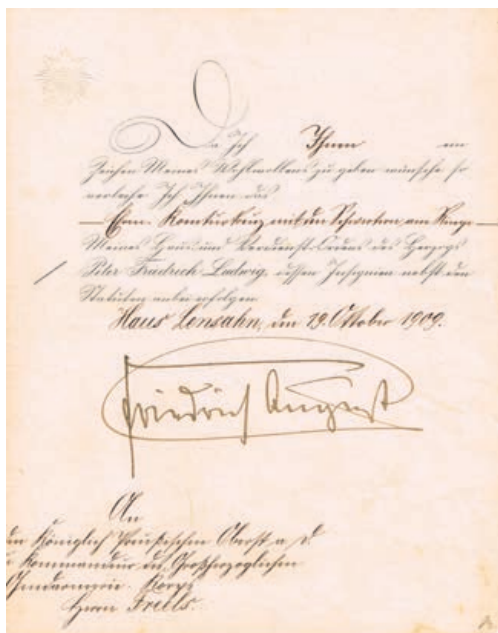 Da Ich Ihnen ein
Zeichen Meines Wohlwollens zu geben wünsche so
verleihe Ich Ihnen das
— Ehren-Komturkreuz mit den Schwertern am Ringe —
Meines Haus- und Verdienst-Ordens des Herzogs
Peter Friedrich Ludwig, dessen Insignien nebst den
Statuten anbei erfolgen.
Haus Lensahn, den 19. Oktober 1909.
Friedrich August
An
den Königlich Preußischen Oberst a. D.
Kommandeur des Großherzoglichen
Gendarmerie-Korps
Herrn Freels.